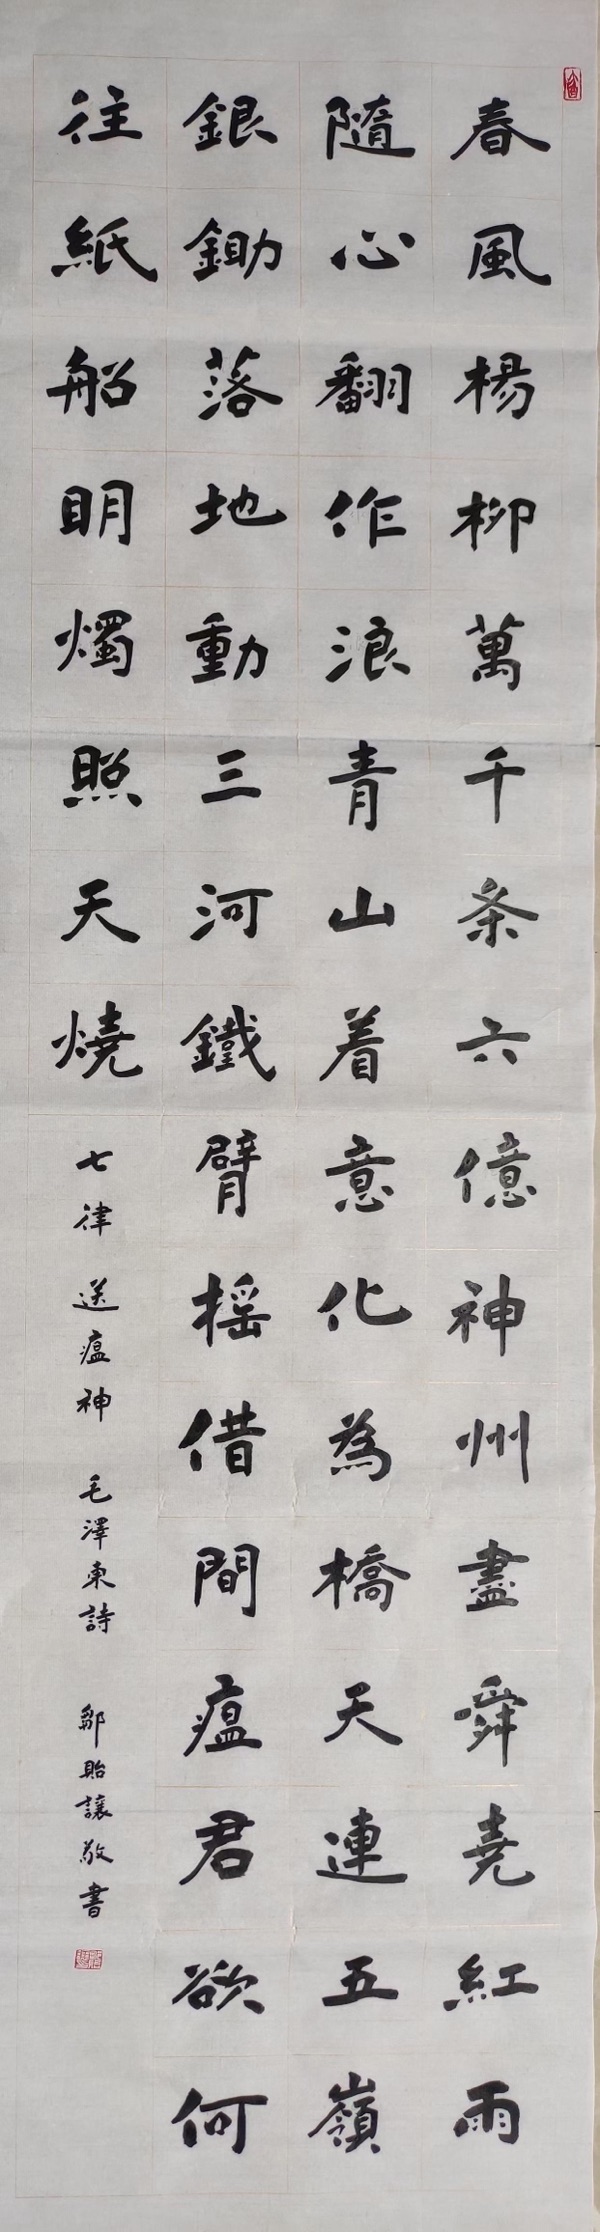 春風楊柳萬千条六億神州盡舜堯紅雨
隨心翻作浪青山着意化為橋天連五嶺
銀鋤落地動三河鐵臂摇借問瘟君欲何
往紙船明燭照天燒
七律 送瘟神 毛澤東詩 鄒貽讓敬書